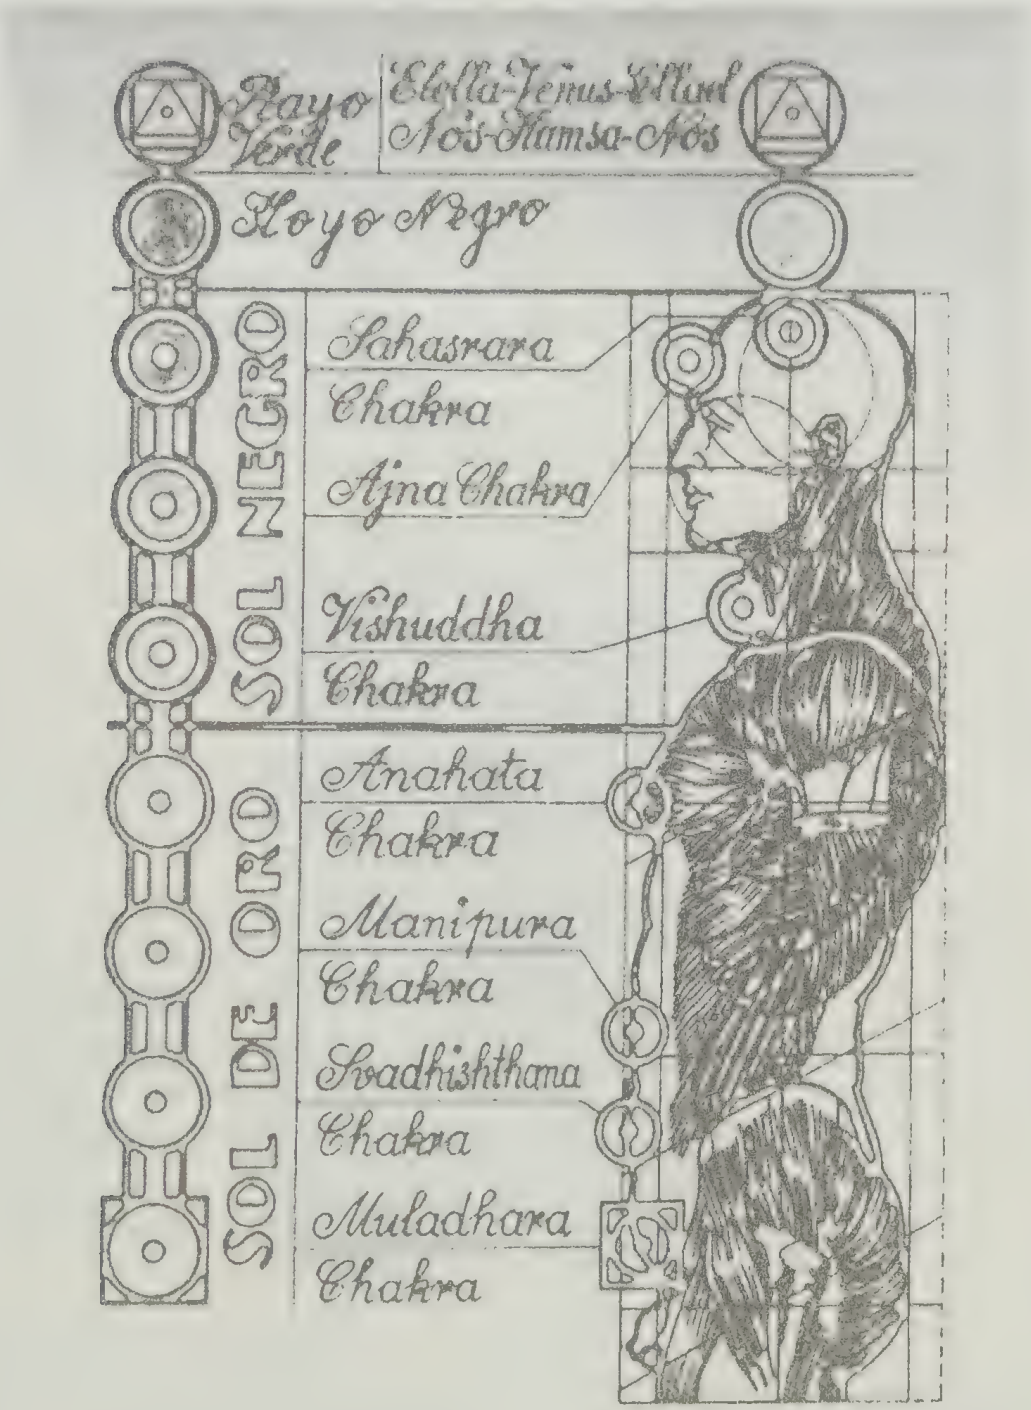 Rayo
Verde
Elella-Venus-Ellael
Aós-Hamsa-Aós
Hoyo Negro
SOL NEGRO
Sahasrara
Chakra
Ajna Chakra
Vishuddha
Chakra
SOL DE ORO
Anahata
Chakra
Manipura
Chakra
Svadhishthana
Chakra
Muladhara
Chakra